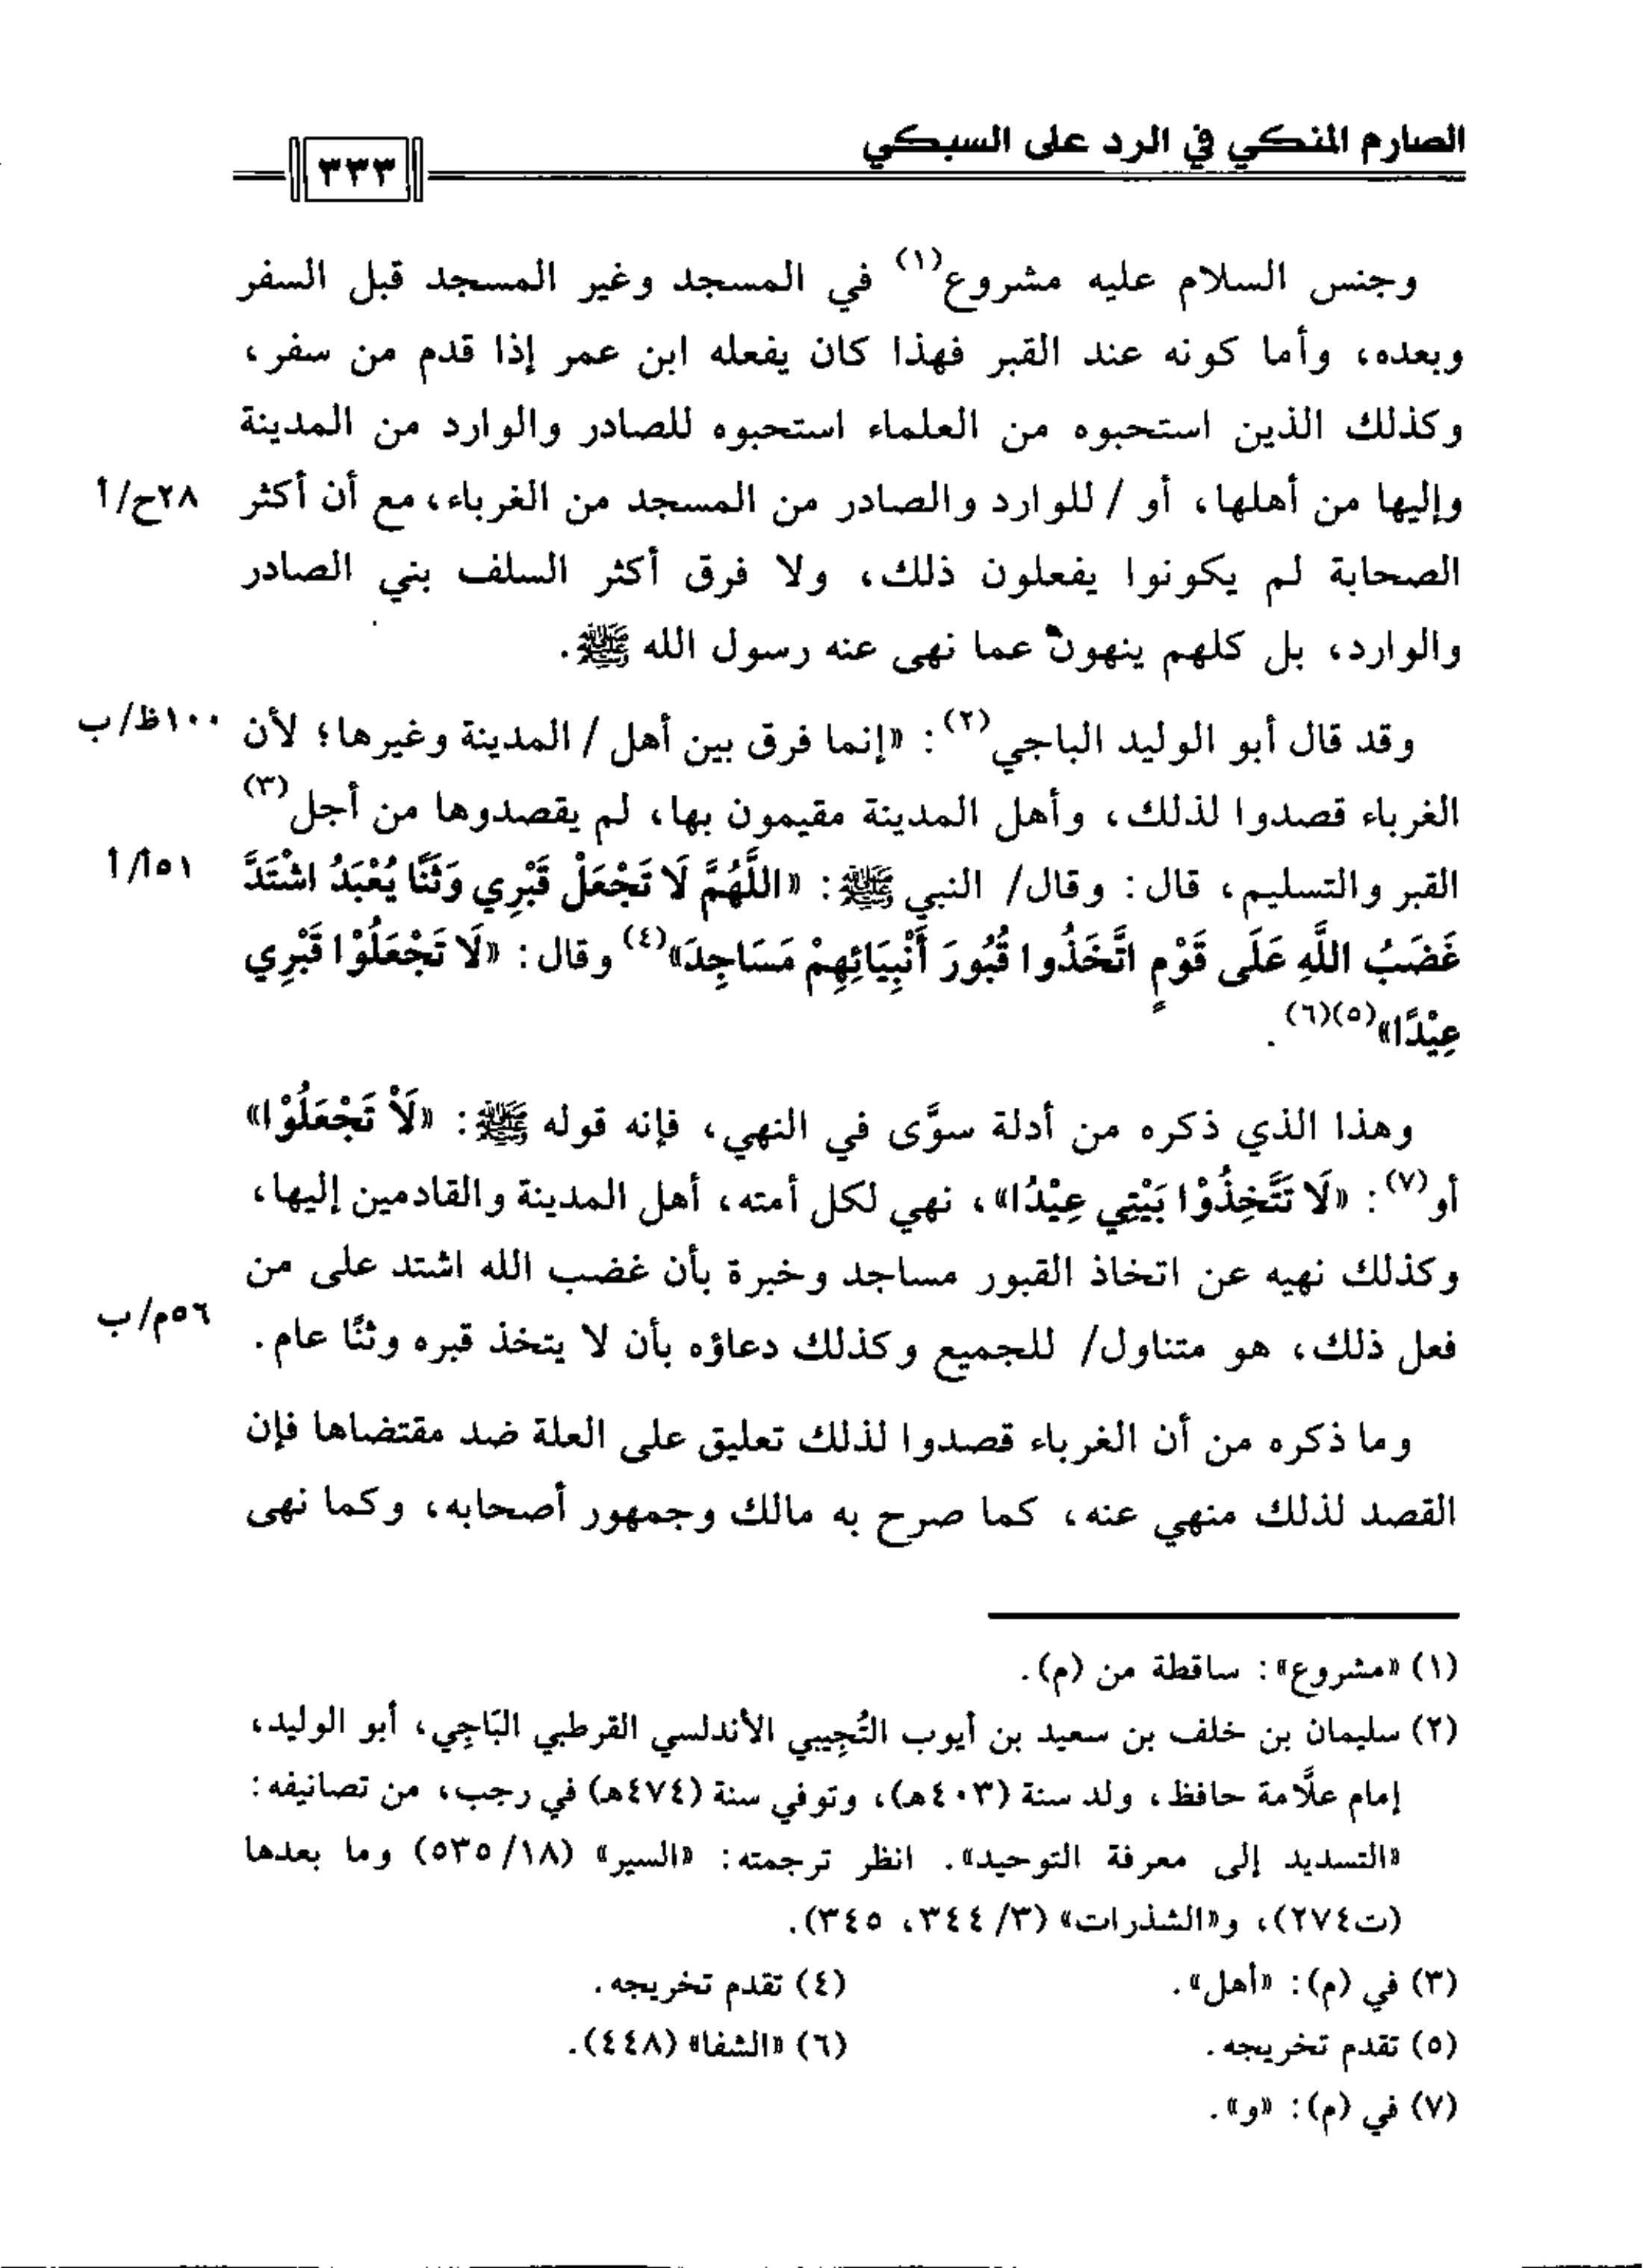 الصارم المنكي في الرد على السبكي
٣٣٣
وجنس السلام عليه مشروع(١) في المسجد وغير المسجد قبل السفر
وبعده، وأما كونه عند القبر فهذا كان يفعله ابن عمر إذا قدم من سفر،
وكذلك الذين استحبوه من العلماء استحبوه للصادر والوارد من المدينة
وإليها من أهلها، أو / للوارد والصادر من المسجد من الغرباء، مع أن أكثر
٢٨ح/أ
الصحابة لم يكونوا يفعلون ذلك، ولا فرق أكثر السلف بني الصادر
والوارد، بل كلهم ينهون عما نهى عنه رسول الله ﷺ.
وقد قال أبو الوليد الباجي(٢): «إنما فرق بين أهل / المدينة وغيرها؛ لأن
١٠٠ظ/ب
الغرباء قصدوا لذلك، وأهل المدينة مقيمون بها، لم يقصدوها من أجل(٣)
القبر والتسليم، قال: وقال/ النبي ﷺ: «اللَّهُمَّ لَا تَجْعَلْ قَبْرِي وَثَنًا يُعْبَدُ اشْتَدَّ
٥١أ/أ
غَضَبُ اللَّهِ عَلَى قَوْمٍ اتَّخَذُوا قُبُورَ أَنْبِيَائِهِمْ مَسَاجِدَ»(٤) وقال: «لَا تَجْعَلُوْا قَبْرِي
عِيْدًا»(٥)(٦).
وهذا الذي ذكره من أدلة سوَّى في النهي، فإنه قوله ﷺ: «لَاْ تَجْعَلُوْا»
أو(٧): «لَا تَتَّخِذُوْا بَيْتِي عِيْدًا»، نهي لكل أمته، أهل المدينة والقادمين إليها،
وكذلك نهيه عن اتخاذ القبور مساجد وخبرة بأن غضب الله اشتد على من
فعل ذلك، هو متناول/ للجميع وكذلك دعاؤه بأن لا يتخذ قبره وثنًا عام.
٥٦م/ب
وما ذكره من أن الغرباء قصدوا لذلك تعليق على العلة ضد مقتضاها فإن
القصد لذلك منهي عنه، كما صرح به مالك وجمهور أصحابه، وكما نهى
(١) «مشروع»: ساقطة من (م).
(٢) سليمان بن خلف بن سعيد بن أيوب التُجِيبي الأندلسي القرطبي البَاجِي، أبو الوليد،
إمام علَّامة حافظ، ولد سنة (٤٠٣هـ)، وتوفي سنة (٤٧٤هـ) في رجب، من تصانيفه:
«التسديد إلى معرفة التوحيد». انظر ترجمته: «السير» (١٨/ ٥٣٥) وما بعدها
(ت٢٧٤)، و«الشذرات» (٣/ ٣٤٤، ٣٤٥).
(٣) في (م): «أهل».
(٤) تقدم تخريجه.
(٥) تقدم تخريجه.
(٦) «الشفا» (٤٤٨).
(٧) في (م): «و».